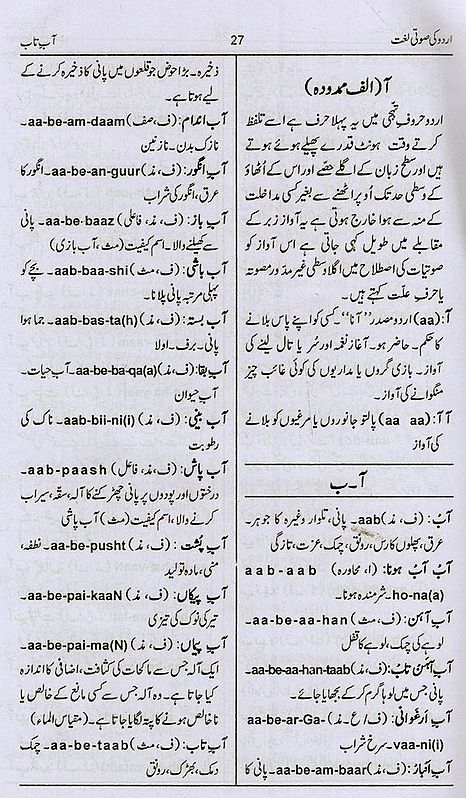 اردو کی صوتی لغت
27
آب تاب
آ (الف ممدودہ)
اردو حروفِ تہجّی میں یہ پہلا حرف ہے اسے تلفظ
کرتے وقت ہونٹ قدرے پھیلے ہوئے ہوتے
ہیں اور سطح زبان کے اگلے حصے اور اس کے اُٹھاؤ
کے وسطی حد تک اُوپر اٹھنے سے بغیر کسی مداخلت
کے منہ سے ہوا خارج ہوتی ہے یہ آواز زبر کے
مقابلے میں طویل کہی جاتی ہے اس آواز کو
صوتیات کی اصطلاح میں اگلا وسطی غیر مدوّر مصوتہ
یا حرفِ علّت کہتے ہیں۔
آ: (aa) اردو مصدر ’’آنا‘‘۔ کسی کو اپنے پاس بلانے
کا حکم۔ حاضر ہو۔ آغازِ نغمہ اور سُر یا تال لینے کی
آواز۔ بازی گروں یا مداریوں کی کوئی غائب چیز
منگوانے کی آواز۔
آ آ: (aa aa) پالتو جانوروں یا مرغیوں کو بلانے
کی آواز
آ۔ب
آبْ: (ف، مذ) aab۔ پانی، تلوار وغیرہ کا جوہر۔
عرق، پھلوں کا رس، رونق، چمک، عزت، تازگی
آبْ آبْ ہونا: (ا، محاورہ) aab-aab
ho-na(a)۔ شرمندہ ہونا۔
آبِ آہن: (ف، مث) aa-be-aa-han۔
لوہے کی چمک، لوہے کا قفل
آبِ آہن تابْ: (ف، مذ) aa-be-aa-han-taab۔
پانی جس میں لوہا گرم کر کے بجھایا جائے۔
آبِ اَرغوانی: (ف/ع۔ مذ) aa-be-ar-Ga-
vaa-ni(i)۔ سرخ شراب
آبِ اَنبارْ: (ف، مذ) aa-be-am-baar۔ پانی کا
ذخیرہ۔ بڑا حوض جو قلعوں میں پانی کا ذخیرہ کرنے کے
لیے ہوتا ہے۔
آبِ اندام: (ف، صف) aa-be-am-daam۔
نازک بدن۔ نازنین
آبِ انگور: (ف، مذ) aa-be-an-guur۔ انگور کا
عرق، انگور کی شراب
آبِ باز: (ف، مذ، فاعلی) aa-be-baaz۔ پانی
سے کھیلنے والا۔ اسم کیفیت (مث، آب بازی)
آبْ باشی: (ف، مث) aab-baa-shi۔ بچے کو
پہلی مرتبہ پانی پلانا۔
آبْ بستہ: (ف، مذ) aab-bas-ta(h)۔ جما ہوا
پانی۔ برف۔ اولا
آبِ بقا: (ف، مذ) aa-be-ba-qa(a)۔ آبِ حیات۔
آبِ حیواں
آبْ بینی: (ف، مذ) aab-bii-ni(i)۔ ناک کی
رطوبت
آبْ پاش: (ف، مذ، فاعل) aab-paash۔
درختوں اور پودوں پر پانی چھڑکنے کا آلہ، سقہ، سیراب
کرنے والا، اسم کیفیت (مث) آب پاشی
آبِ پشت: (ف، مذ) aa-be-pusht۔ نطفہ،
منی، مادہ تولید
آبِ پیکاں: (ف، مذ) aa-be-pai-kaaN۔
تیر کی نوک کی تیزی
آبِ پیماں: (ف، مذ) aa-be-pai-ma(N)۔
ایک آلہ جس سے مائعات کی کثافت، اضافی کا اندازہ
کیا جاتا ہے۔ وہ آلہ جس سے کسی مائع کے خالص یا
ناخالص ہونے کا پتہ لگایا جاتا ہے۔ (مقیاس الماء)
آبِ تاب: (ف، مث) aa-be-taab۔ چمک
دمک، بھڑک، رونق